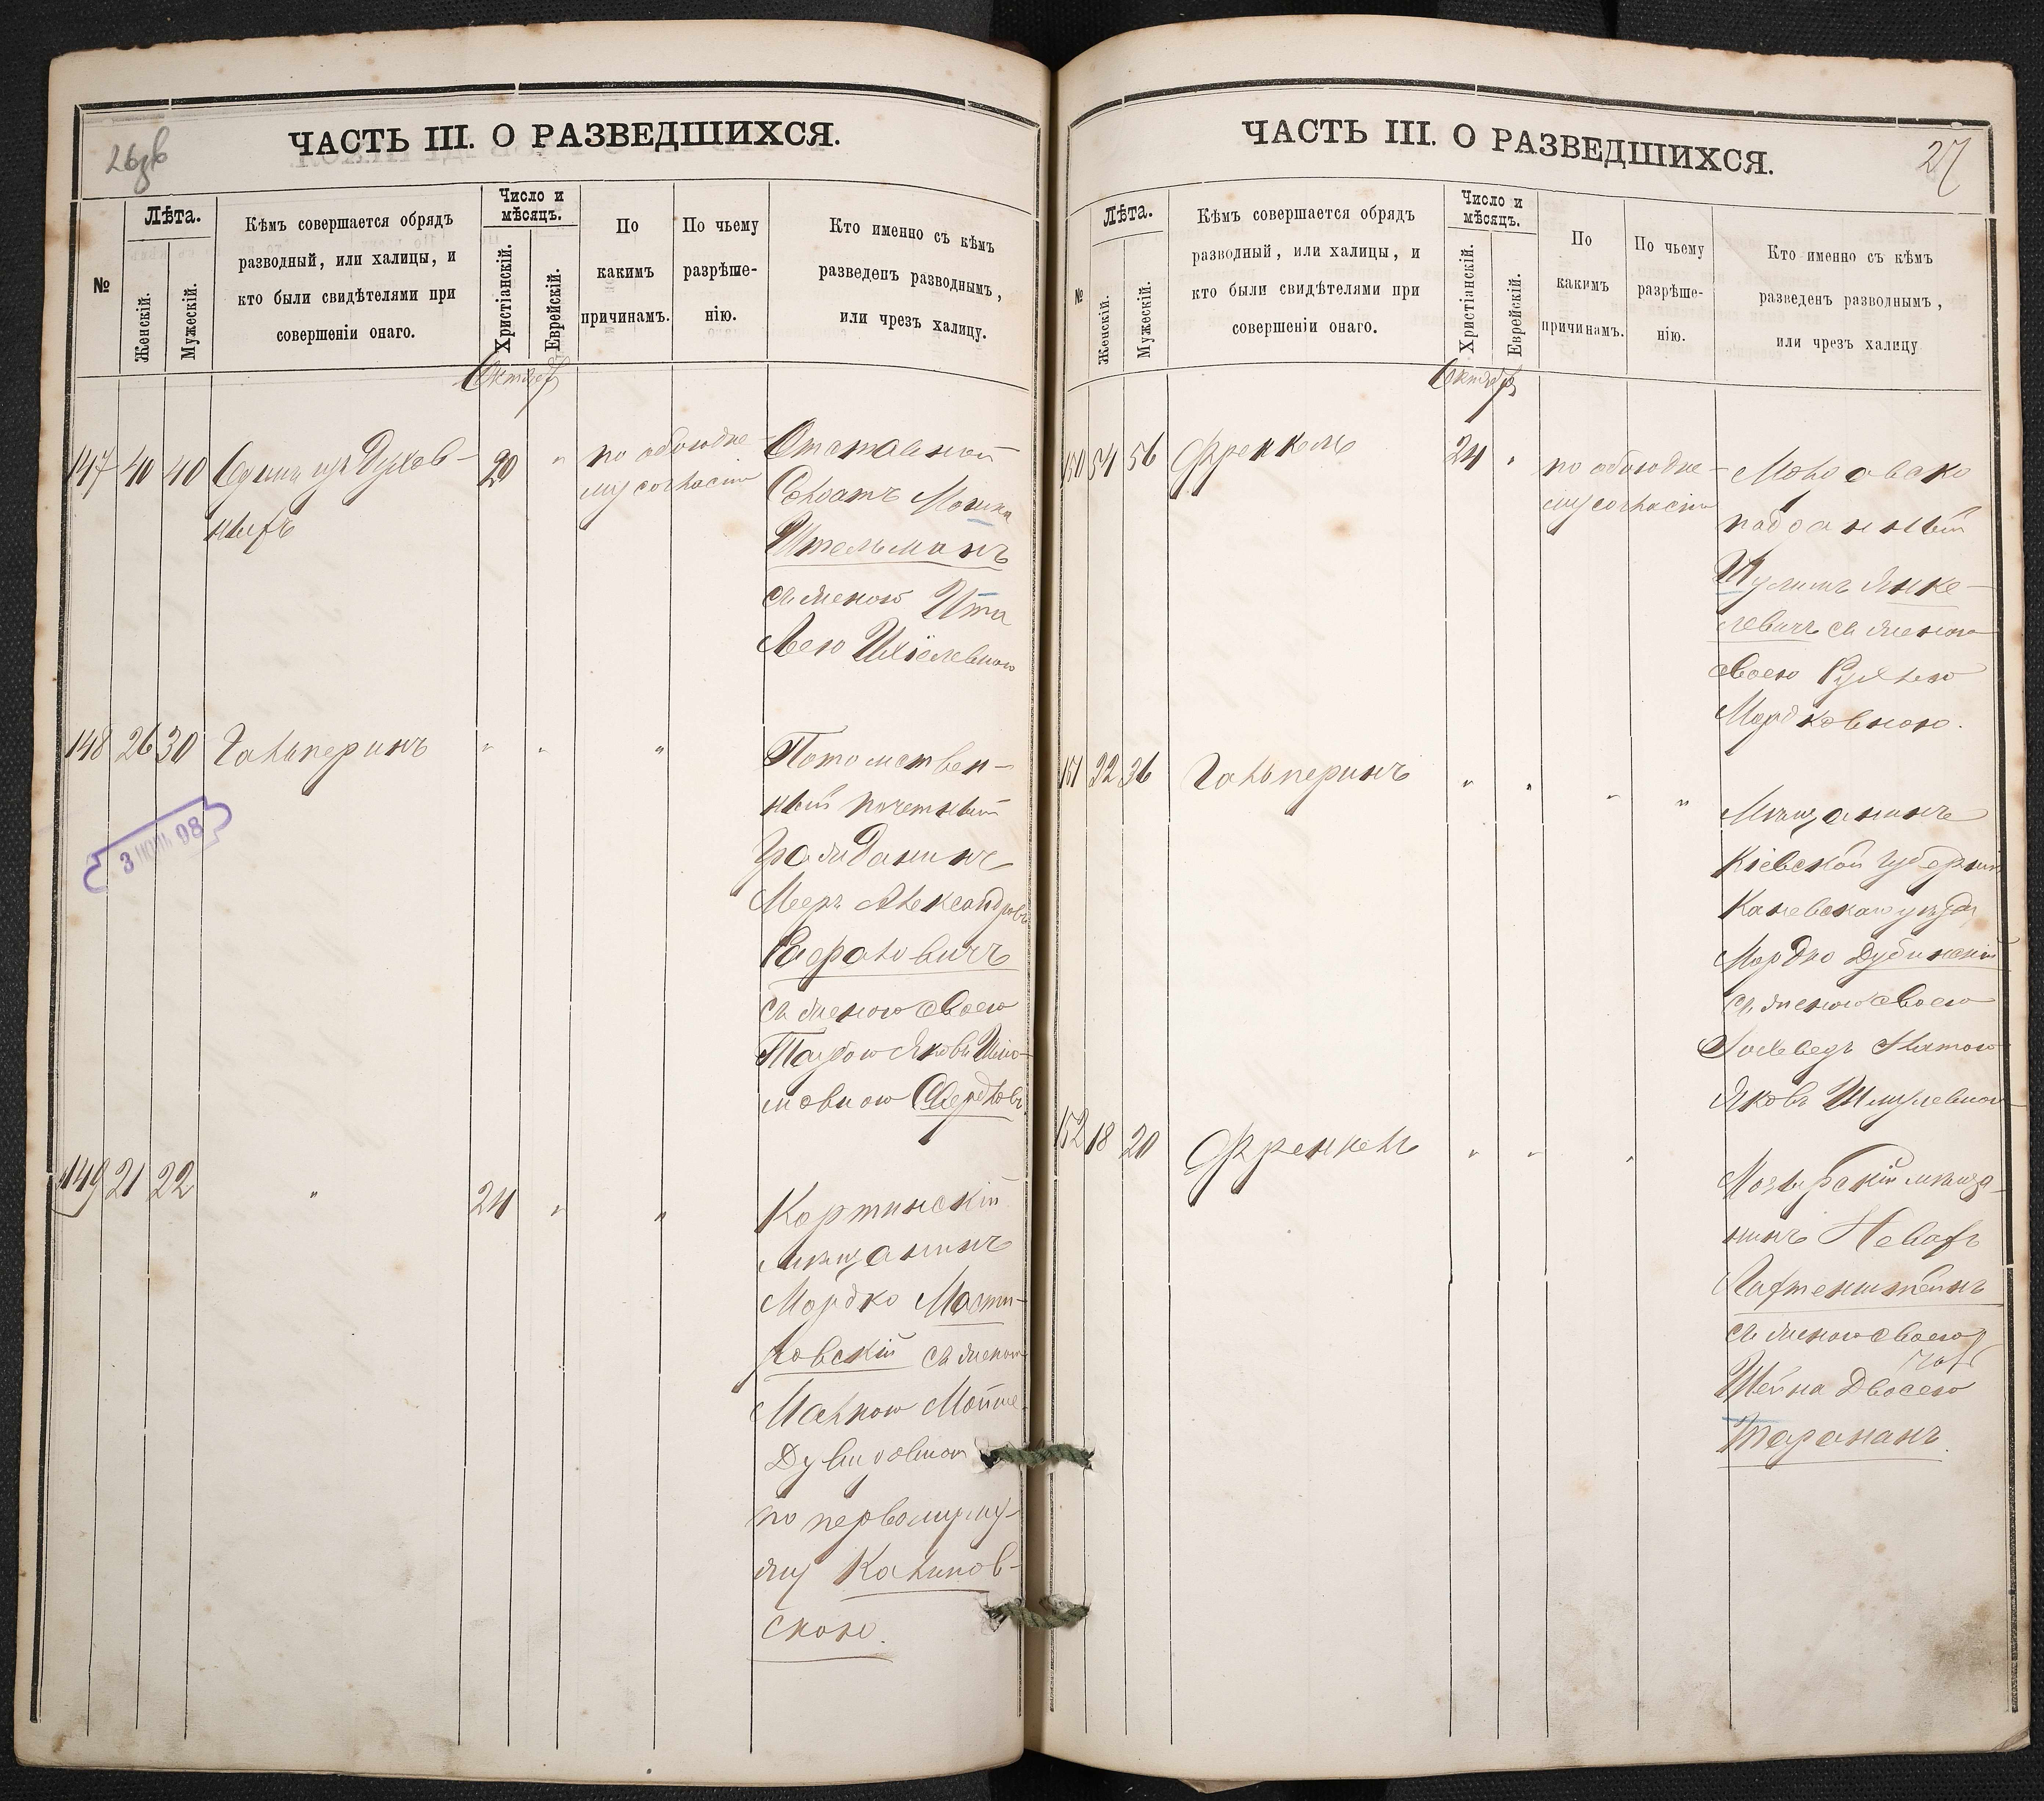 ЧАСТЬ III. О РАЗВЕДШИХСЯ.
№
Лѣта.
Женскій.
Мужескій.
Кѣмъ совершается обрядъ
разводный, или халицы, и
кто были свидѣтелями при
совершеніи онаго.
Число и
мѣсяцъ.
Христіанскій.
Еврейскій.
По
какимъ
причинамъ.
По чьему
разрѣше-
нію.
Кто именно съ кѣмъ
разведенъ разводнымъ,
или чрезъ халицу.
147 40 40
20 "
по обоюдно-
му согласію
Отставной
Солдатъ Мошка
Ительманъ
съ женою Ита
Леею Ихіелевною
148 26 30 Гальперинъ " " "
Потомствен-
ный почетный
Гражданинъ
Мееръ Александровъ
Рафаловичъ
съ женою своею
Таубою Яковъ Шмо-
мовною
3 ІЮНЬ 08
149 21 22 " 24 " "
мѣщанинъ
Мордко
съ женою
Малкою Мойше-
Дувидовною
по первому му-
жу Калинов-
скою.
ЧАСТЬ III. О РАЗВЕДШИХСЯ.
27
№
Лѣта.
Женскій.
Мужескій.
Кѣмъ совершается обрядъ
разводный, или халицы, и
кто были свидѣтелями при
совершеніи онаго.
Число и
мѣсяцъ.
Христіанскій.
Еврейскій.
По
какимъ
причинамъ.
По чьему
разрѣше-
нію.
Кто именно съ кѣмъ
разведенъ разводнымъ,
или чрезъ халицу
150 54 56 Френкель 24 "
по обоюдно-
му согласію
Молдавско
подданный
Янке-
левичъ съ женою
своею Рухлею
Мордковною.
151 22 36 Гальперинъ " " " "
Мѣщанинъ
Кіевской губерніи
Каневскаго уѣзда
Мордко Дубинскій
съ женою своею
Іохеведъ Златою
Яковъ Шмулевною
152 18 20 Френкель " " "
Мозырскій мѣща-
нинъ
съ женою своею
Шейна Двосею